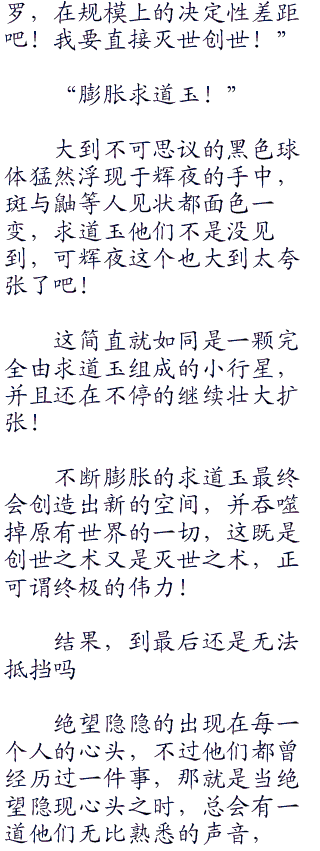 罗，在规模上的决定性差距
吧！我要直接灭世创世！”
“膨胀求道玉！”
大到不可思议的黑色球
体猛然浮现于辉夜的手中，
斑与鼬等人见状都面色一
变，求道玉他们不是没见
到，可辉夜这个也大到太夸
张了吧！
这简直就如同是一颗完
全由求道玉组成的小行星，
并且还在不停的继续壮大扩
张！
不断膨胀的求道玉最终
会创造出新的空间，并吞噬
掉原有世界的一切，这既是
创世之术又是灭世之术，正
可谓终极的伟力！
结果，到最后还是无法
抵挡吗
绝望隐隐的出现在每一
个人的心头，不过他们都曾
经历过一件事，那就是当绝
望隐现心头之时，总会有一
道他们无比熟悉的声音，